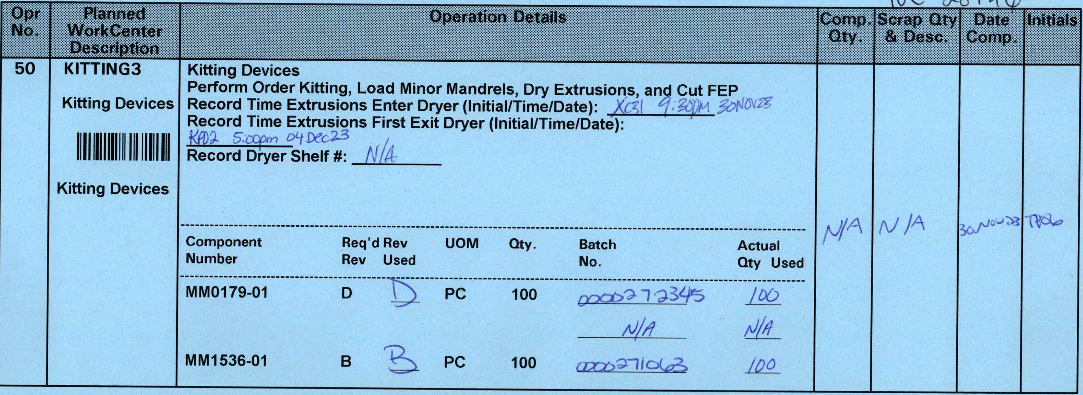 Opr No. Planned WorkCenter Description Operation Details Comp. Qty. Scrap Qty & Desc. Date Comp. Initials
50 KITTING3 Kitting Devices
Perform Order Kitting, Load Minor Mandrels, Dry Extrusions, and Cut FEP
Kitting Devices Record Time Extrusions Enter Dryer (Initial/Time/Date): XC31 9:30PM 30NOV23
Record Time Extrusions First Exit Dryer (Initial/Time/Date):
KAD2 5:00pm 04Dec23
Record Dryer Shelf #: N/A
Kitting Devices
N/A N/A 30NOV23
Component Number Req'd Rev Rev Used UOM Qty. Batch No. Actual Qty Used
MM0179-01 D D PC 100 0000272345 100
N/A N/A
MM1536-01 B B PC 100 0000271063 100